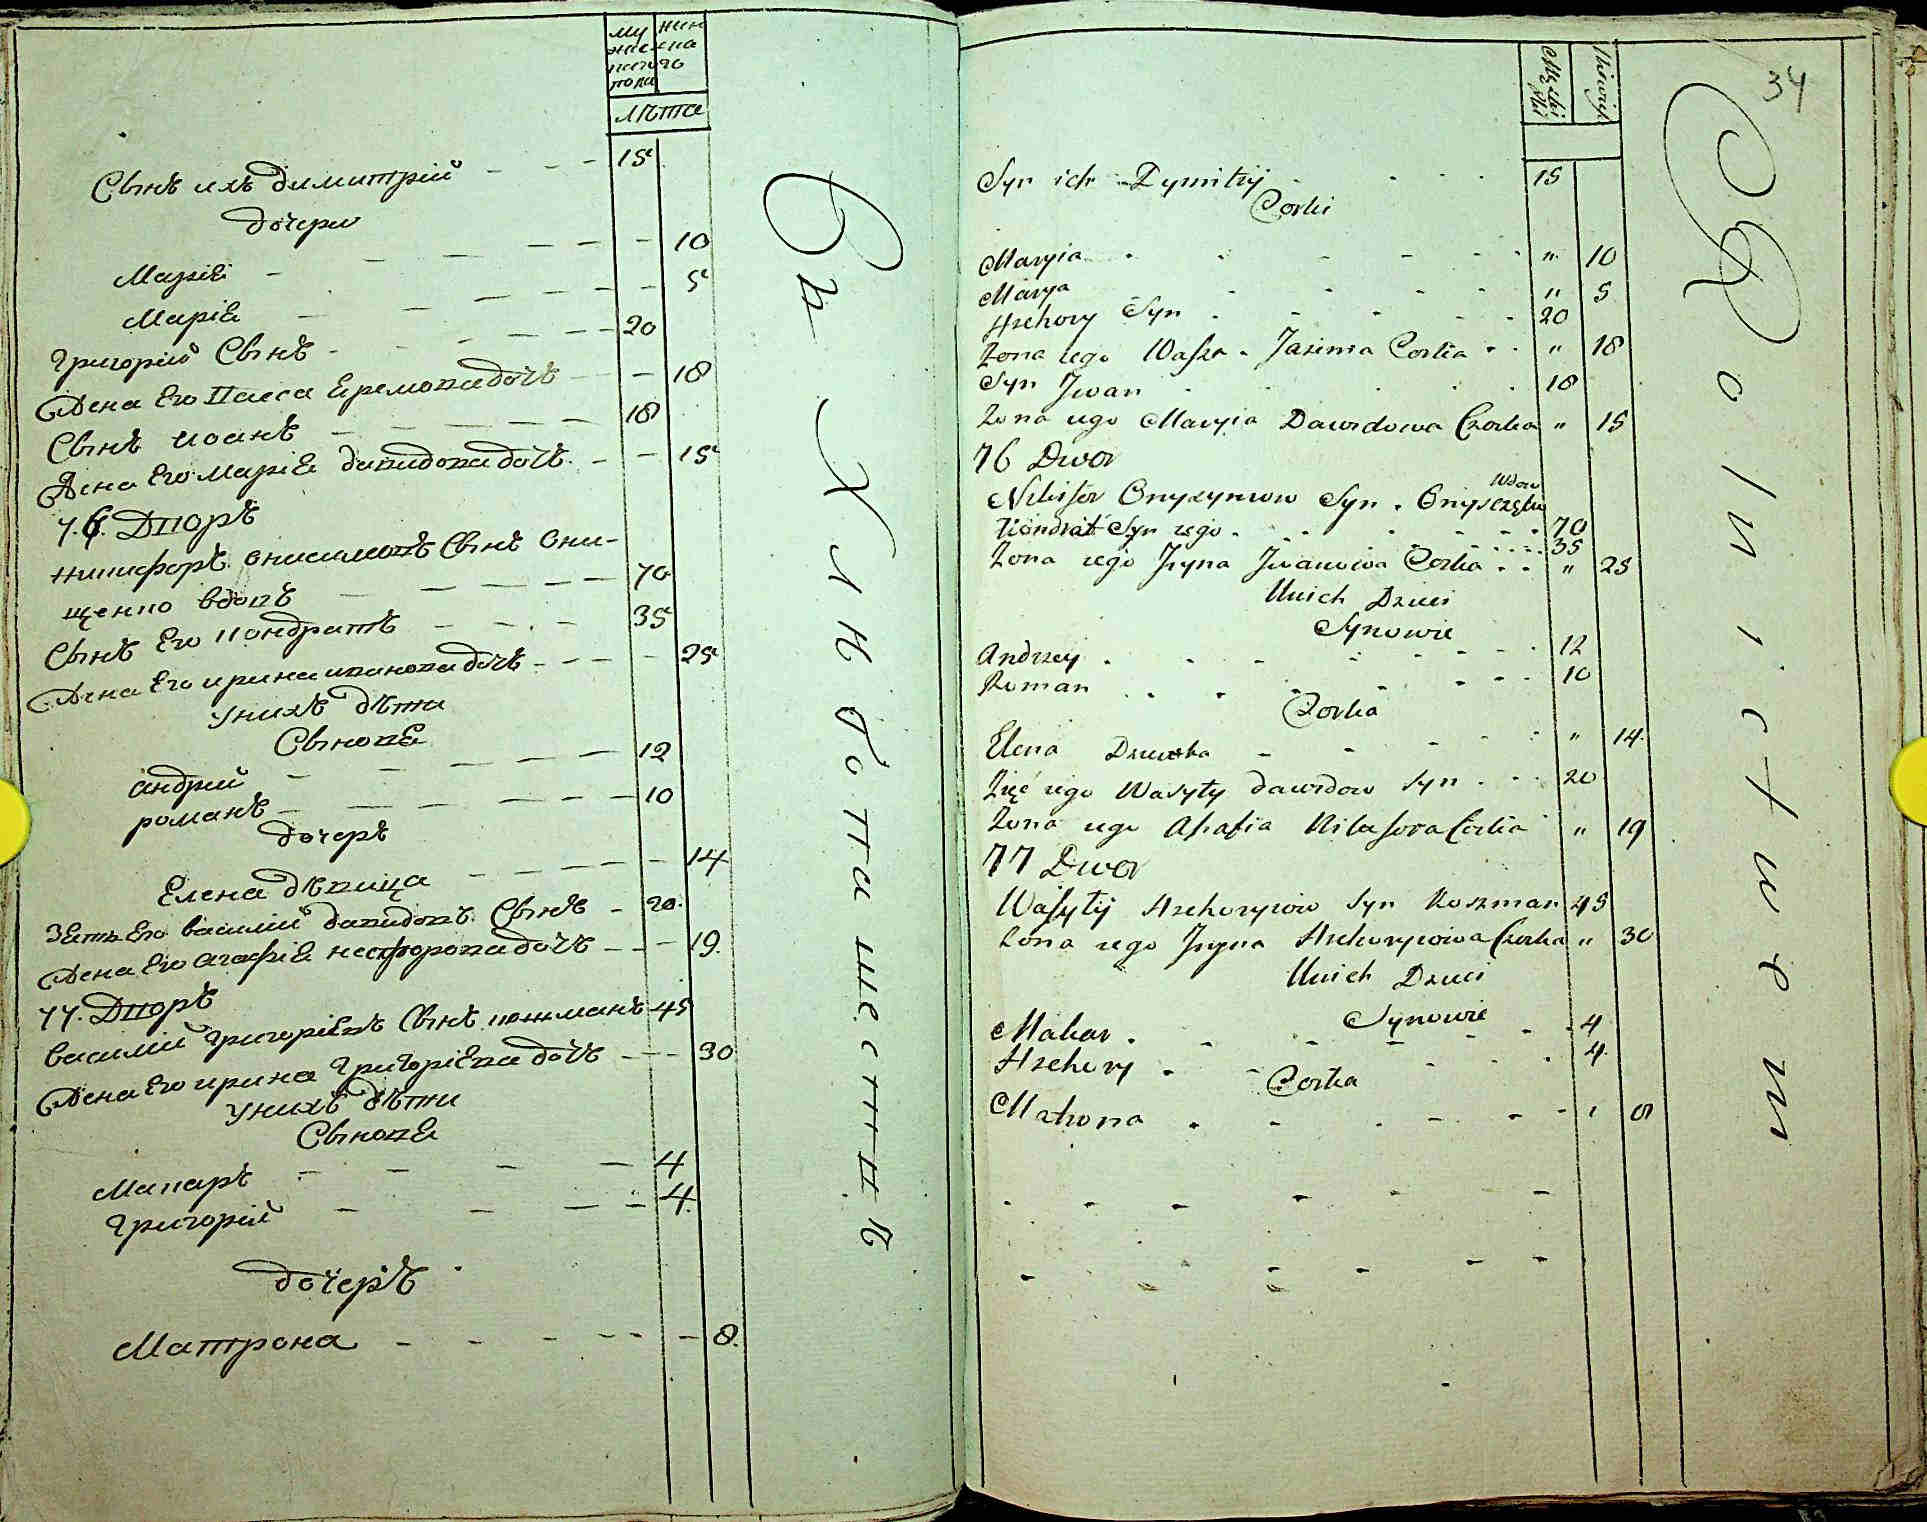 мужиска пола
лѣта
Сынъ ихъ димитрий 15
дочери
Мария 10
Мария 5
григорий Сынъ 20
Жена Его Васса Еремова дочь 18
Сынъ иоанъ 18
Жена Его Мария давидова дочь 15
76. Дворъ
Никифоръ онисимовъ Сынъ Они-
щенко вдовъ 70
Сынъ Его Кондратъ 35
Жена Его ирина иванова дочь 25
У нихъ дѣти
Сыновя
андрий 12
романъ 10
дочеръ
Елена дѣвица 14
Зять Его василий давидовъ Сынъ 20
Жена Его агафия несфорова дочь 19
77. Дворъ
василий григориевъ Сынъ кожманъ 45
Жена Его ирина григориева дочь 30
У нихъ дѣти
Сыновя
Макаръ 4
григорий 4
дочеръ
Матрона 8
въ Хлибопашествѣ
34
Syn ich Dymitry 15
Corki
Maryia " 10
Marya " 5
Hrehory Syn 20
Zona iego Wassa Jarema Corka " 18
Syn Jwan 18
Zona iego Maryia Dawidowa Czorka " 15
76 Dwor
Nikifor Onyzymow Syn Onyszczenko Wdow 70
Kondrat Syn iego 35
Zona iego Jryna Jwanowa Corka " 25
U nich Dzieci
Synowie
Andrzey 12
Roman 10
Corka
Elena Dziewka " 14
Zięć iego Wasyly dawidow Syn 20
Zona iego Ahafia Nikifora Corka " 19
77 Dwor
Wasylij Hrehorijow Syn Kozman 45
Zona iego Jryna Hrehoryiowa Czorka " 30
U nich Dzieci
Synowie
Makar 4
Hrehory 4
Corka
Matrona 8
Rolnictwem